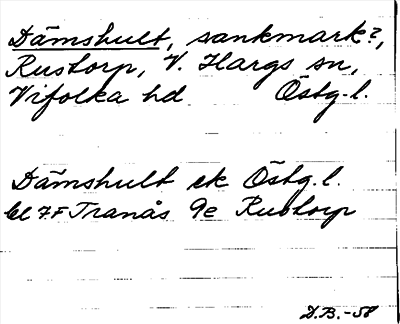 Dämshult, sankmark?,
Rustorp, V. Hargs sn,
Vifolka hd Östg.l.
Dämshult ek Östg.l.
bl 7F Tranås 9e Rustorp
D.B.-58